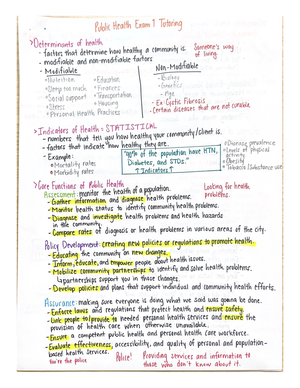 Public Health Exam 1 Tutoring
>Determinants of health
- factors that determine how healthy a community is. Someone's way of living.
- modifiable and non-modifiable factors
- Modifiable
• Nutrition
• Sleep too much
• Social support
• Stress
• Personal Health Practices
• Education
• Finances
• Transportation
• Housing
Non-Modifiable
- Biology
- Genetics
- Age
- Ex: Cystic Fibrosis
- Certain diseases that are not curable.
>Indicators of Health = STATISTICAL
- numbers that tell you how healthy your community/client is.
- factors that indicate how healthy they are.
- Example:
• Mortality rates
• Morbidity rates
"80% of the population have HTN, Diabetes, and STDs."
↑Indicators↑
• Disease prevalence
• Levels of physical activity
• Obesity
• Tobacco/Substance use
>Core Functions of Public Health
Looking for health problems.
Assessment: monitor the health of a population.
- Gather information and diagnose health problems.
- Monitor health status to identify community health problems.
- Diagnose and investigate health problems and health hazards
in the community.
- Compare rates of diagnosis or health problems in various areas of the city.
Policy Development: creating new policies or regulations to promote health.
- Educating the community on new changes.
- Inform, educate, and empower people about health issues.
- Mobilize community partnerships to identify and solve health problems.
↳partnerships support you in those changes.
- Develop policies and plans that support individual and community health efforts.
Assurance: making sure everyone is doing what we said was gonna be done.
- Enforce laws and regulations that protect health and ensure safety.
- Link people to/provide to needed personal health services and ensure the
provision of health care when otherwise unavailable.
- Ensure a competent public health and personal health care workforce.
- Evaluate effectiveness, accessibility, and quality of personal and population-
based health services.
You're the police
Police!
Providing services and information to
those who don't know about it.